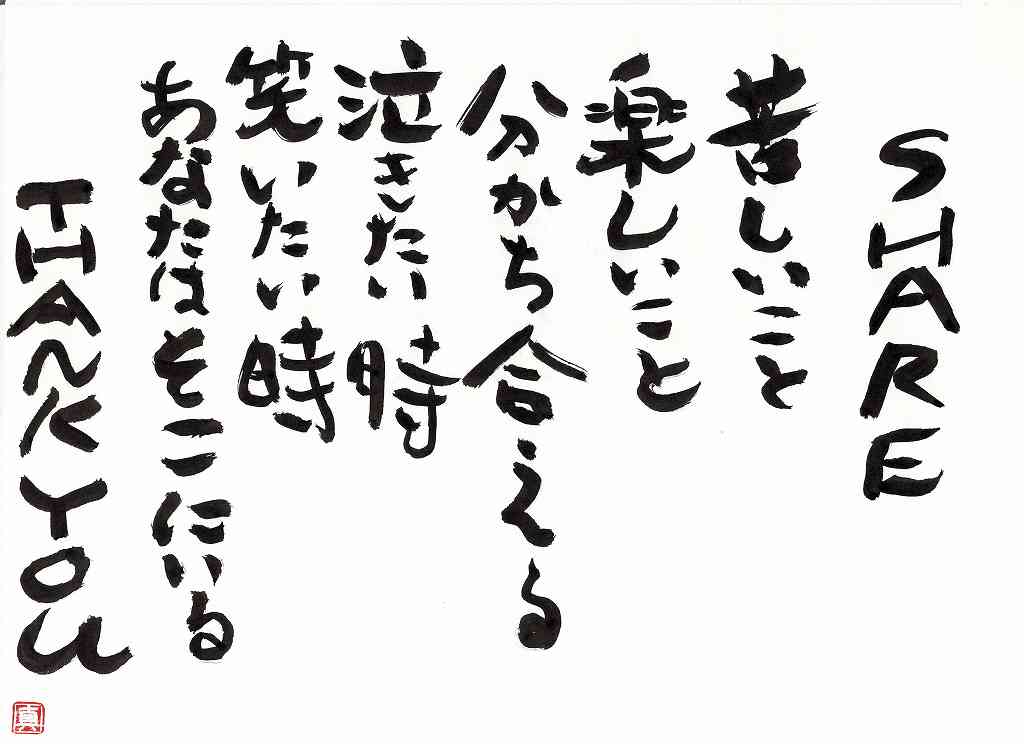 SHARE
苦しいこと
楽しいこと
分かち合える
泣きたい時
笑いたい時
あなたはそこにいる
THANK YOU
真